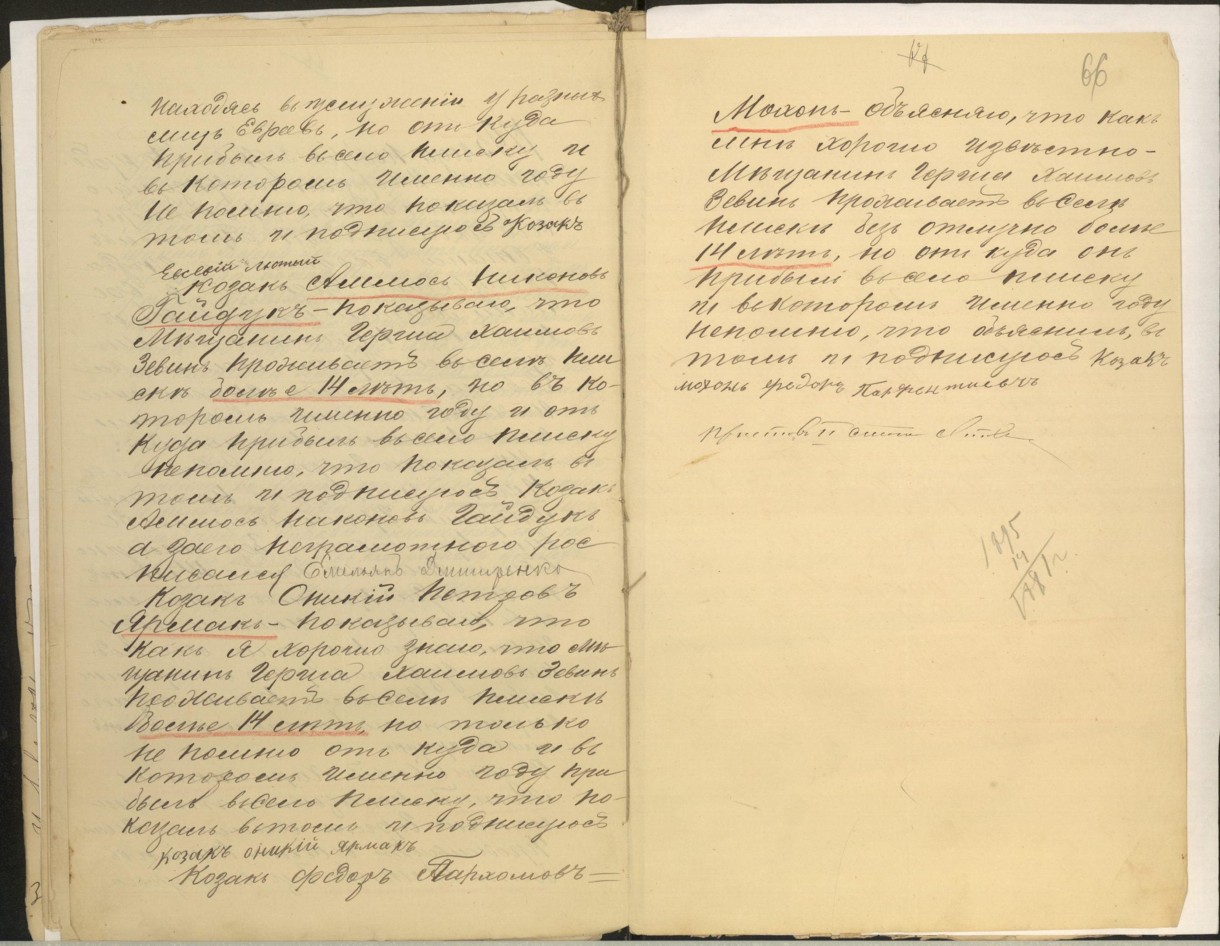 находясь въ услуженіи у разныхъ
лицъ Евреевъ, но отъ куда
прибылъ въ село Плиску и
въ которомъ именно году
не помню, что показалъ въ
томъ и подписуюсъ Козакъ
Евсевій Лютый
Козакъ Аммосъ Никоновъ
Гайдукъ – показываю, что
Мѣщанинъ Герша Хаимовъ
Зевинъ проживаетъ въ селѣ Пли
скѣ болѣе 14 лѣтъ, но въ ко-
торомъ именно году и отъ
куда прибылъ въ село Плиску
непомню, что показалъ въ
томъ и подписуюсъ Козакъ
Аммосъ Никоновъ Гайдукъ
а за его неграмотного рос
писался Емельянъ Дмитренко
Козакъ Оникій Петровъ
Ярмакъ – показываю, что
какъ я хорошо знаю, что мѣ-
щанинъ Герша Хаимовъ Зевинъ
проживаетъ въ селѣ Плискѣ
Болѣе 14 лѣтъ, но только
не помню отъ куда и въ
которомъ именно году при
былъ въ село Плиску, что по-
казалъ въ томъ и подписуюсъ
козакъ оникій ярмакъ
Козакъ Федоръ Пархомовъ =
66
Мохонь – объясняю, что какъ
мнѣ хорошо извѣстно –
Мѣщанинъ Герша Хаимовъ
Зевинъ проживаетъ въ селѣ
Плискѣ безъ отлучно болѣе
14 лѣтъ, но отъ куда онъ
прибылъ въ село Плиску
и въ которомъ именно году
непомню, что объяснилъ, въ
томъ и подписуюсъ Козакъ
мохонь федоръ Панфентиевичъ
Приставъ II стана
1895
14
1881 г.